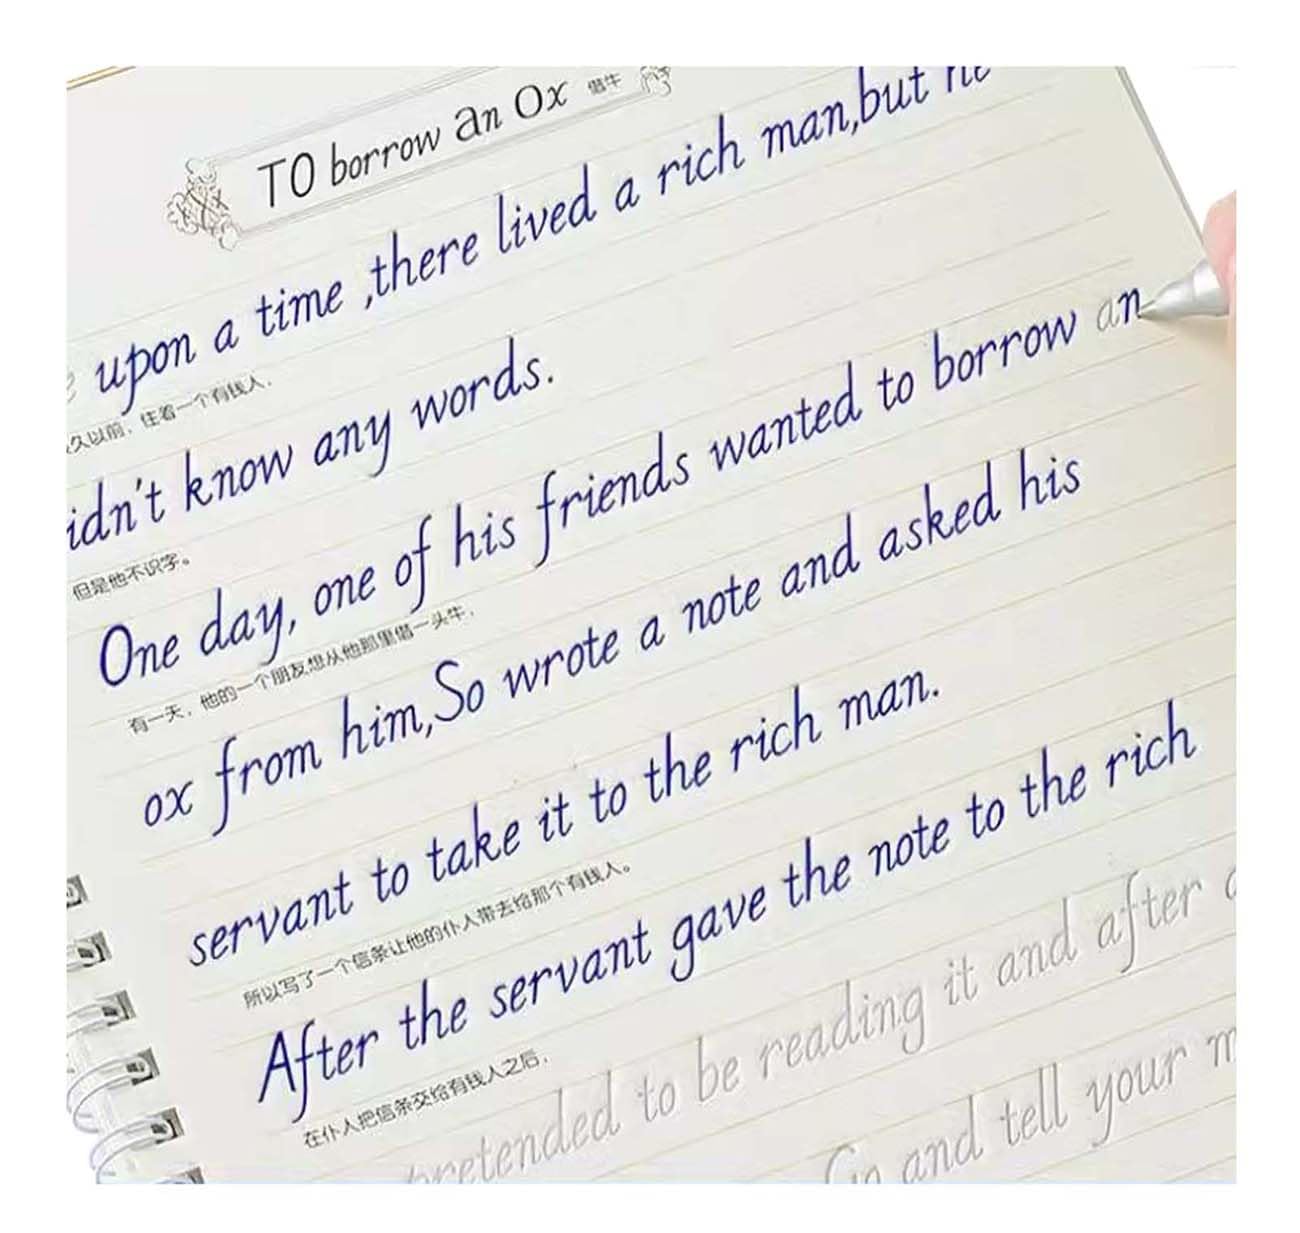 TO borrow an Ox 借牛
upon a time ,there lived a rich man,but he
久以前，住着一个有钱人，
idn't know any words.
但是他不识字。
One day, one of his friends wanted to borrow an
有一天，他的一个朋友想从他那里借一头牛，
ox from him,So wrote a note and asked his
servant to take it to the rich man.
所以写了一个信条让他的仆人带去给那个有钱人。
After the servant gave the note to the rich
在仆人把信条交给有钱人之后，
pretended to be reading it and after
Go and tell your